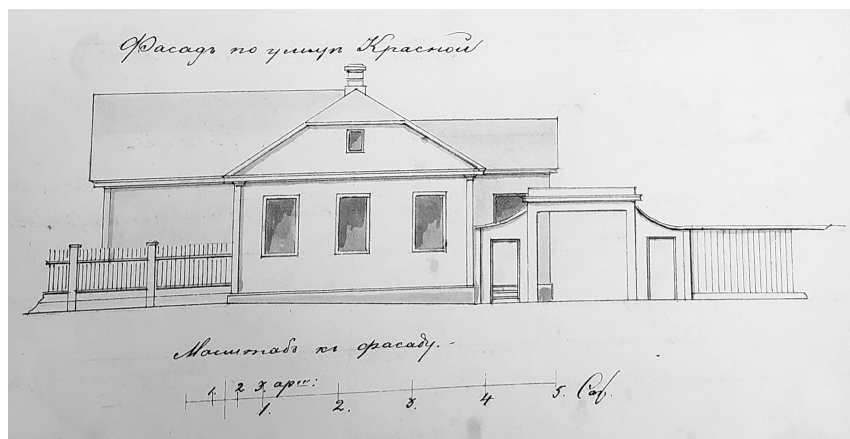 Фасадъ по улицѣ Красной
Масштабъ къ фасаду.
1. 2 3. арш:
1. 2. 3. 4 5. Саж.